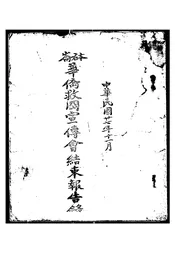 中華民國廿七年十二月
砵崙華僑救國宣傳會結束報告